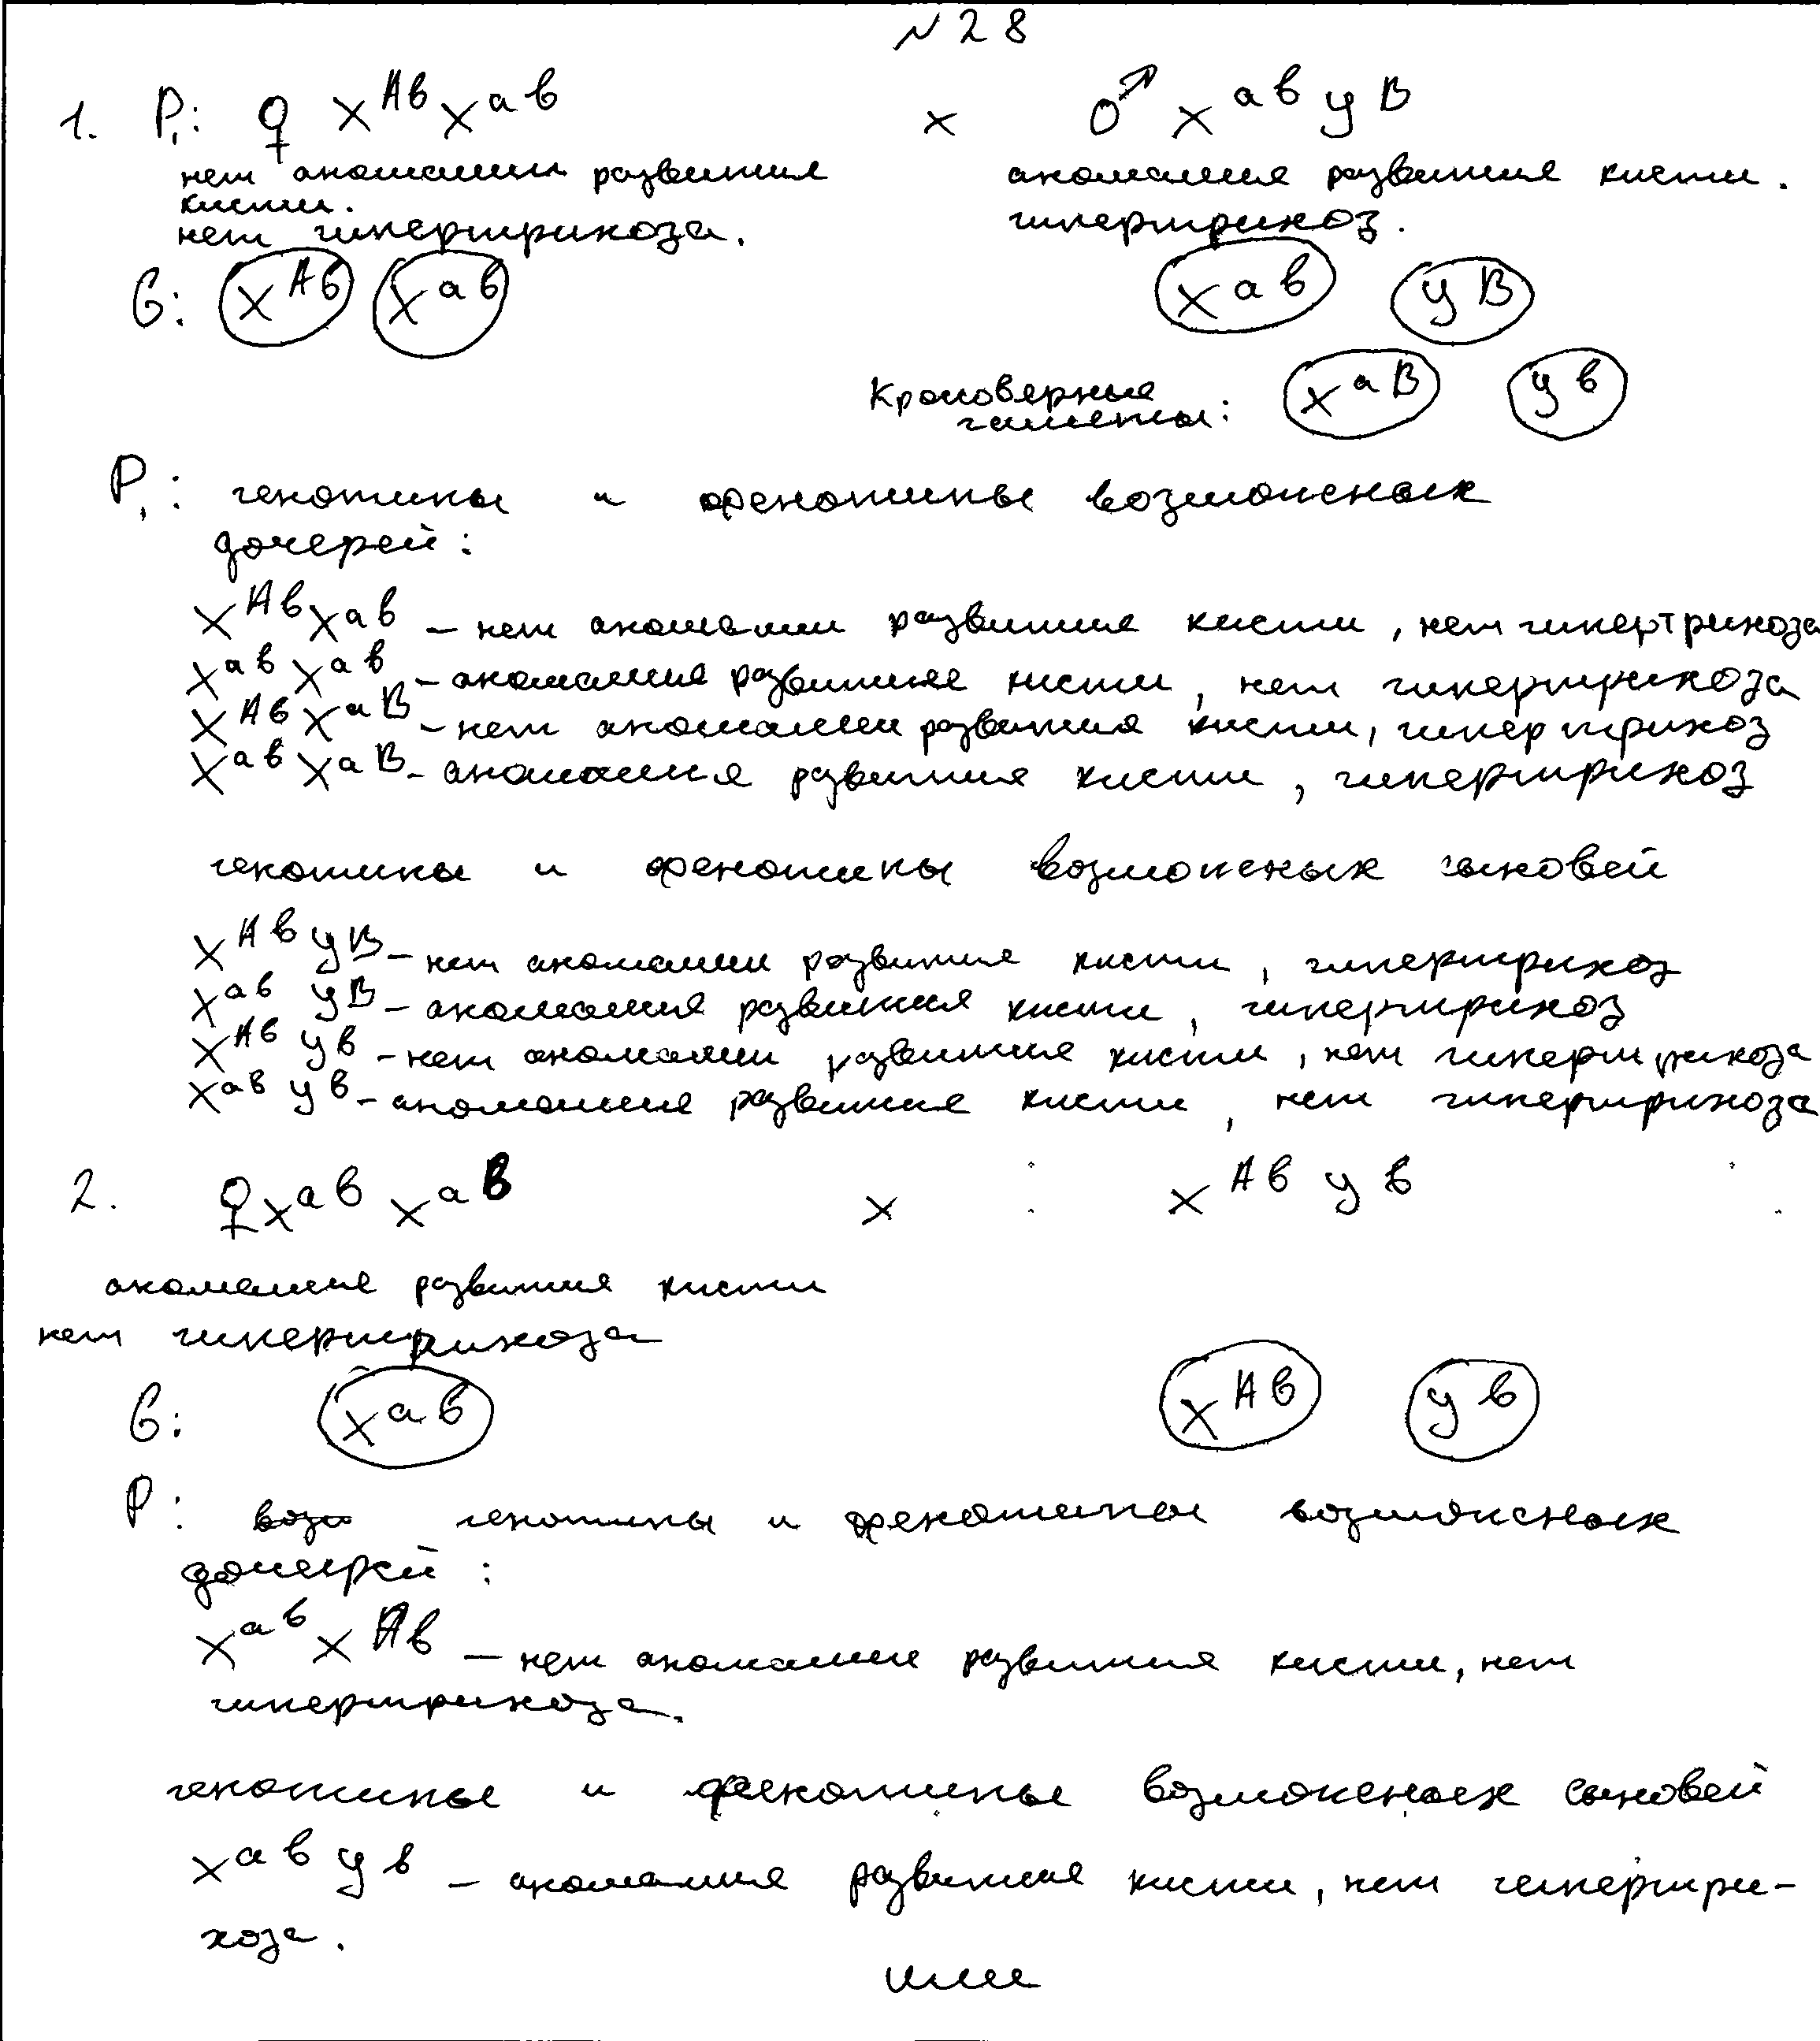 №28
1. P₁: ♀ X^Aв X^aв x ♂ X^aв y^B
нет аномалии развития аномалия развития кисти.
кисти.
нет гипертрихоза. гипертрихоз.
G: X^Aв X^aв X^aв y^B
Кроссоверные X^aB y^в
гаметы:
P₁: генотипы и фенотипы возможных
дочерей:
X^Aв X^aв – нет аномалии развития кисти, нет гипертрихоза
X^aв X^aв – аномалия развития кисти, нет гипертрихоза
X^Aв X^aB – нет аномалии развития кисти, гипертрихоз
X^aв X^aB – аномалия развития кисти, гипертрихоз
генотипы и фенотипы возможных сыновей
X^Aв y^B – нет аномалии развития кисти, гипертрихоз
X^aв y^B – аномалия развития кисти, гипертрихоз
X^Aв y^в – нет аномалии развития кисти, нет гипертрихоза
X^aв y^в – аномалия развития кисти, нет гипертрихоза
2. ♀ X^aв X^aв x X^Aв y^в
аномалия развития кисти
нет гипертрихоза
G: X^aв X^Aв y^в
P: генотипы и фенотипы возможных
дочерей:
X^aв X^Aв – нет аномалии развития кисти, нет
гипертрихоза.
генотипы и фенотипы возможных сыновей
X^aв y^в – аномалия развития кисти, нет гипертри-
хоза.
или